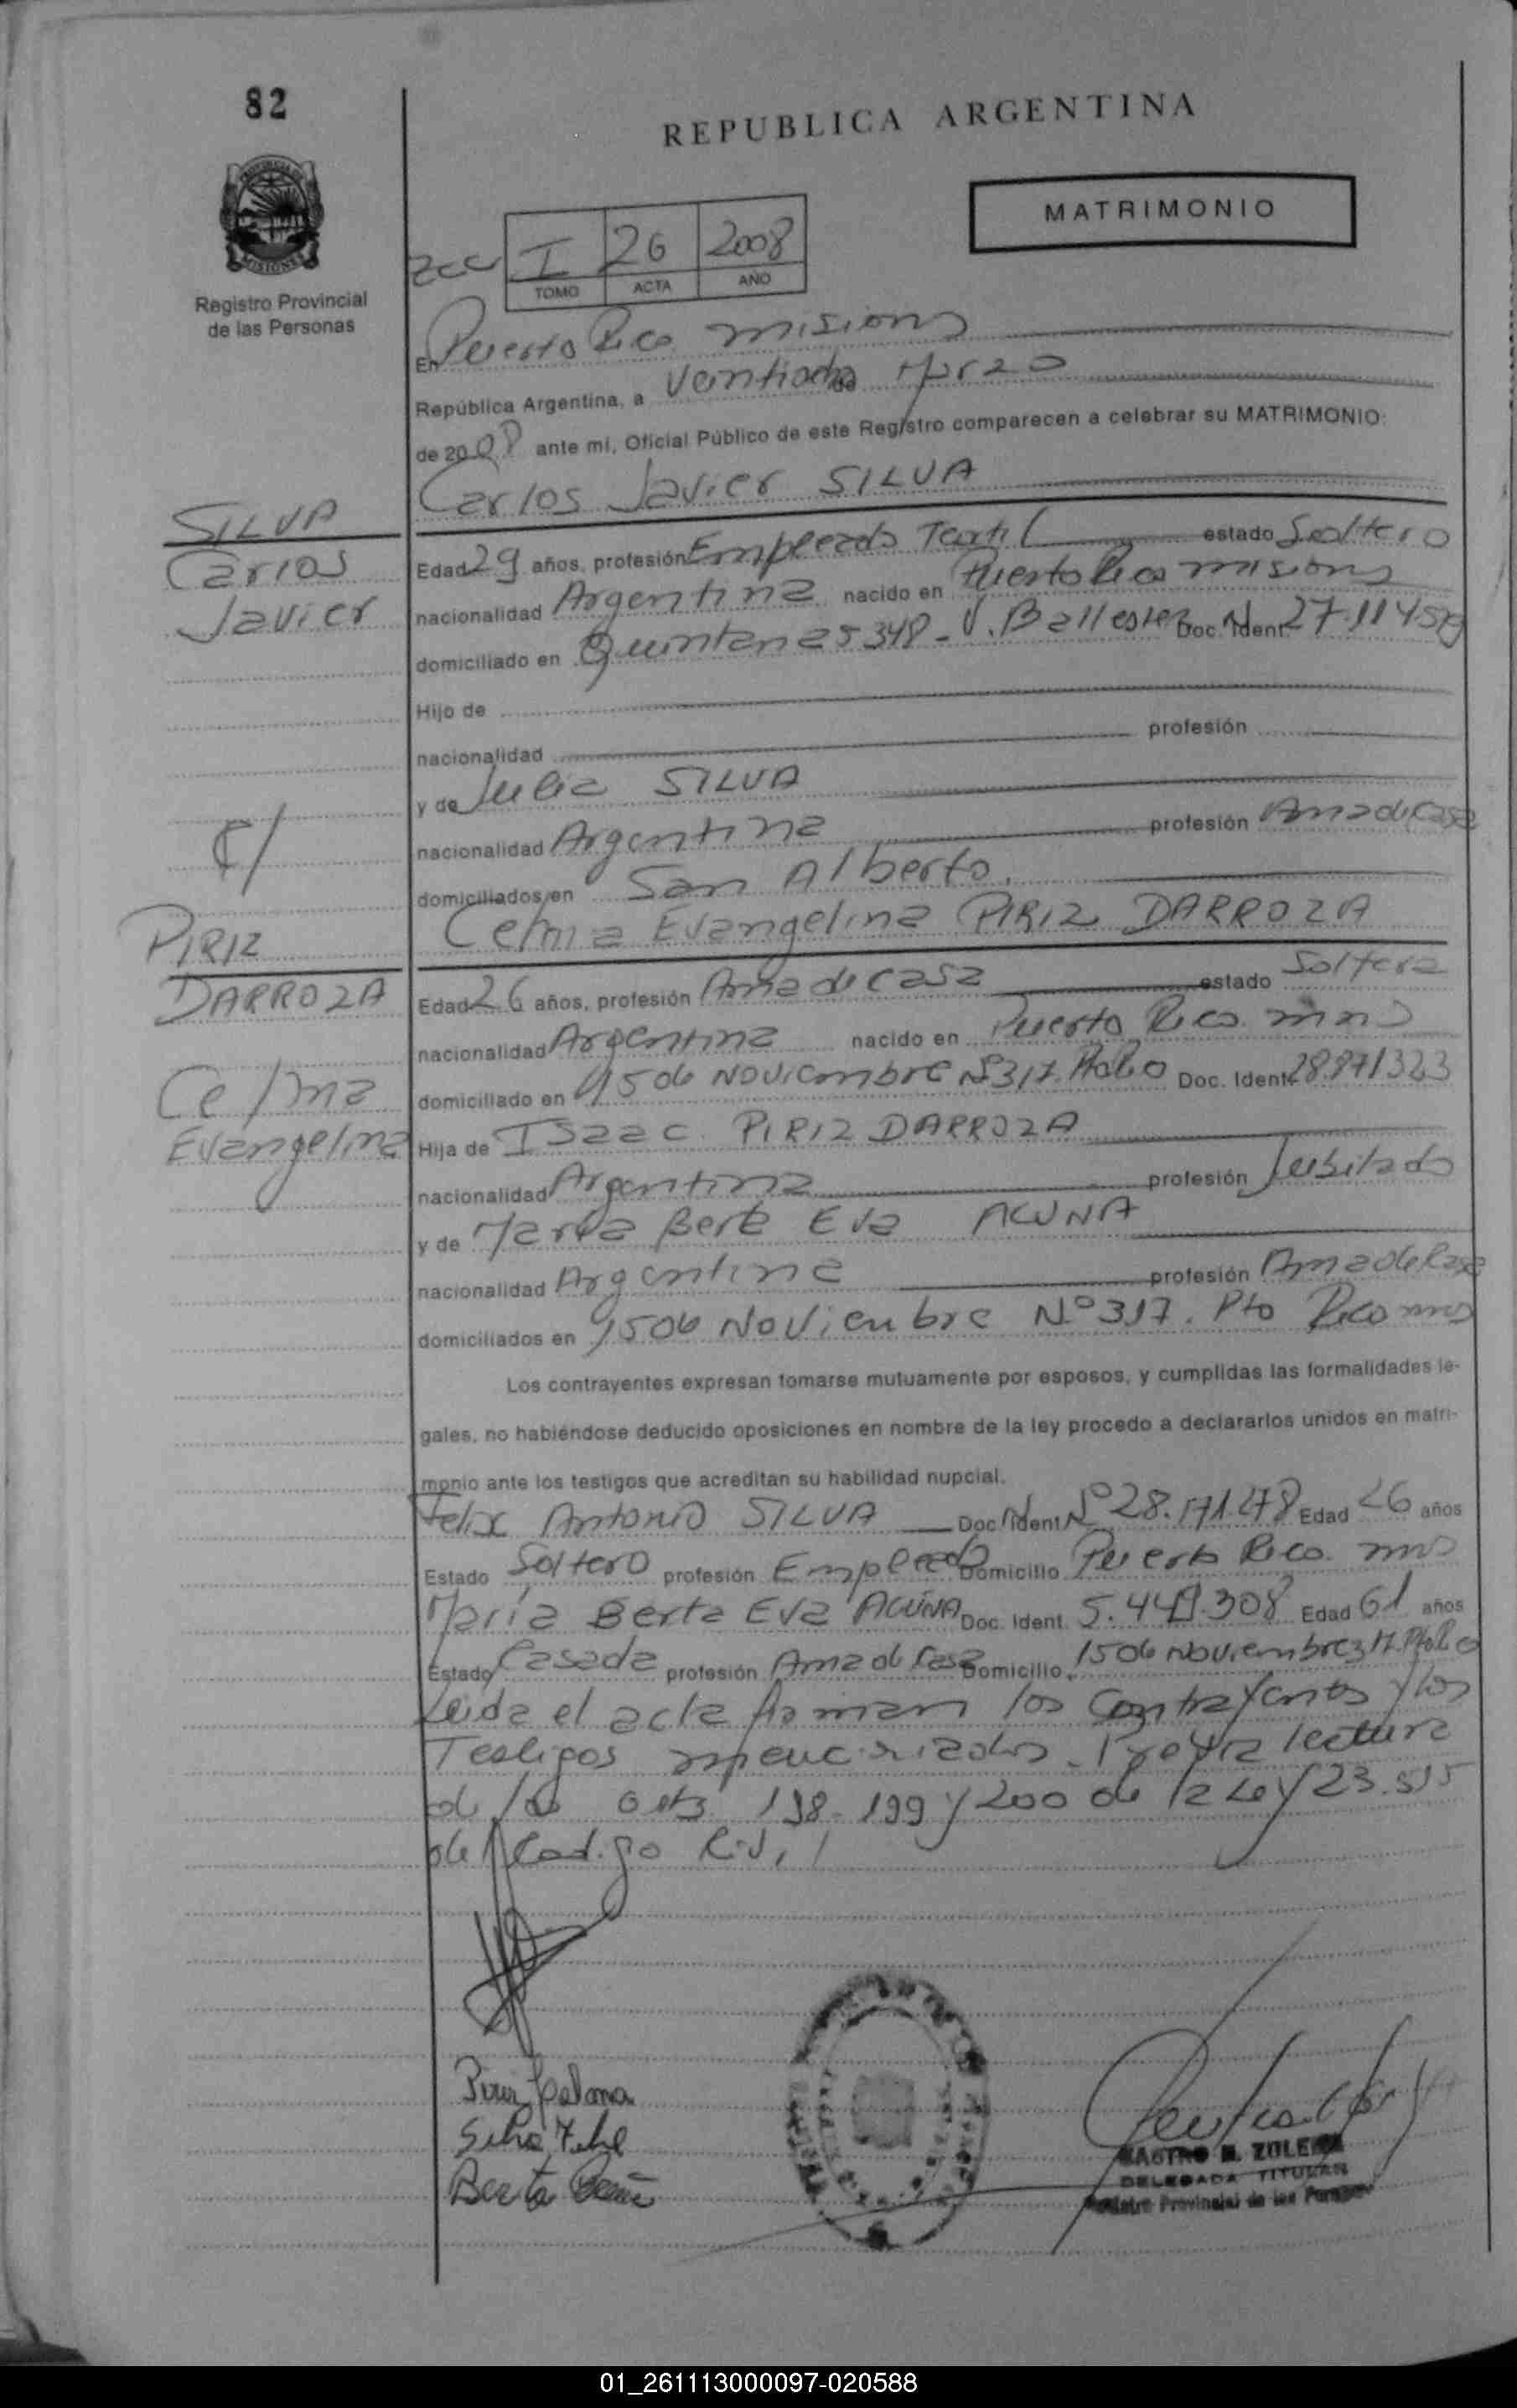 82
REPUBLICA ARGENTINA
MATRIMONIO
I 26 2008
TOMO ACTA AÑO
PROVINCIA DE
MISIONES
Registro Provincial
de las Personas
En Puerto Rico misiones
República Argentina, a Veintiocho de Marzo
de 2008 ante mí, Oficial Público de este Registro comparecen a celebrar su MATRIMONIO:
Carlos Javier SILVA
SILVA
Carlos
Javier
Edad 29 años, profesión Empleado Textil estado Soltero
nacionalidad Argentina nacido en Puerto Rico misiones
domiciliado en Quintana 5348 - V. Ballester Doc. Ident. 27.114.5
Hijo de
nacionalidad profesión
y de Julia SILVA
nacionalidad Argentina profesión Ama de Casa
domiciliados en San Alberto.
C/
Celma Evangelina PIRIZ DARROZA
PIRIZ
DARROZA
Celma
Evangelina
Edad 26 años, profesión Ama de Casa estado Soltera
nacionalidad Argentina nacido en Puerto Rico. mns
domiciliado en 15 de Noviembre Nº 317. Pto Rico Doc. Ident. 28871323
Hija de Isaac PIRIZ DARROZA
nacionalidad Argentina profesión Jubilado
y de María Berta Eva ACUÑA
nacionalidad Argentina profesión Ama de Casa
domiciliados en 15 de Noviembre Nº 317. Pto Rico mns
Los contrayentes expresan tomarse mutuamente por esposos, y cumplidas las formalidades le-
gales, no habiéndose deducido oposiciones en nombre de la ley procedo a declararlos unidos en matri-
monio ante los testigos que acreditan su habilidad nupcial.
Felix Antonio SILVA Doc. Ident. Nº 28.171.278 Edad 26 años
Estado Soltero profesión Empleado Domicilio Puerto Rico. mns
María Berta Eva ACUÑA Doc. Ident. 5.449.308 Edad 61 años
Estado Casada profesión Ama de Casa Domicilio 15 de Noviembre 317. Pto Rico
Leida el acta firman los Contrayentes y los
Testigos mencionados. Previa lectura
de los arts 198-199 y 200 de la Ley 23.515
del Codigo Civil
Piriz Celma
Silva Felix
Berta Acuña
CASTRO M. ZULEMA
DELEGADA TITULAR
Registro Provincial de las Personas
01_261113000097-020588